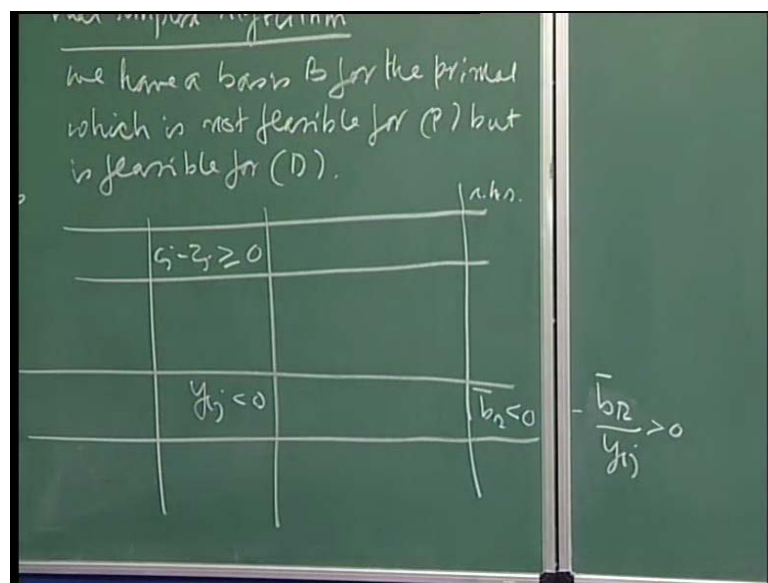 we have a basis B for the primal
which is not feasible for (P) but
is feasible for (D).
r.h.s.
cj - zj ≥ 0
yrj < 0
b̄r < 0
b̄r / yrj > 0